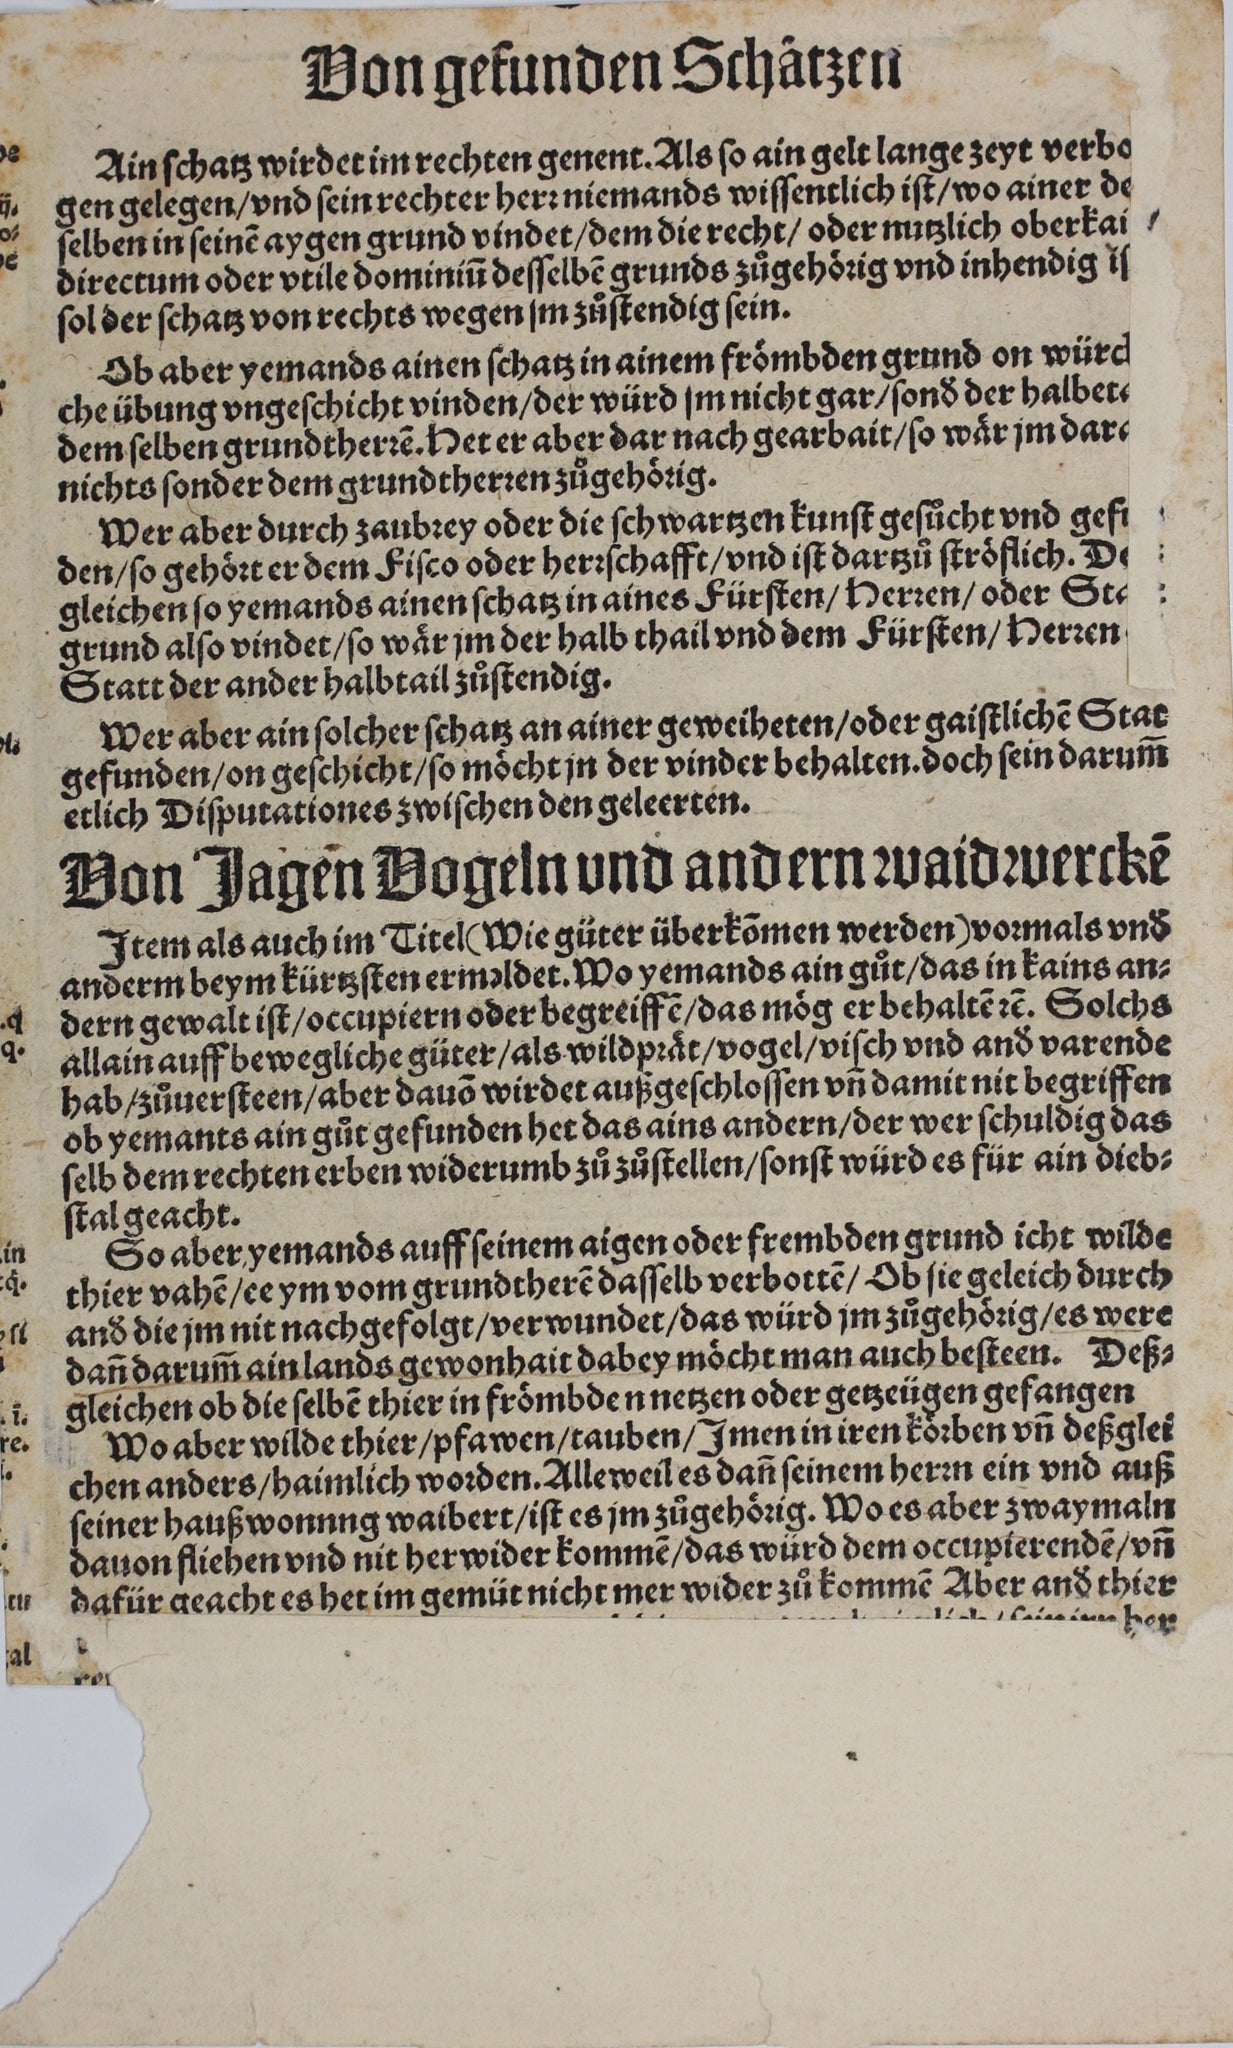 Von gefunden Schätzen
Ain schatz wirdet im rechten genent. Als so ain gelt lange zeyt verbo
gen gelegen/vnd sein rechter herr niemands wissentlich ist/wo ainer de
selben in seinē aygen grund vindet/dem die recht/ oder nutzlich oberkai
directum oder vtile dominiū desselbē grunds zůgehörig vnd inhendig is
sol der schatz von rechts wegen jm zůstendig sein.
Ob aber yemands ainen schatz in ainem frömbden grund on würc
che übung vngeschicht vinden/der würd jm nicht gar/sonđ der halbet
dem selben grundtherrē. Het er aber dar nach gearbait/so wär jm dar
nichts sonder dem grundtherren zůgehörig.
Wer aber durch zaubrey oder die schwartzen kunst gesůcht vnd gef
den/so gehört er dem Fisco oder herrschafft/vnd ist dartzů ströflich. De
gleichen so yemands ainen schatz in aines Fürsten/ Herren/ oder Sta
grund also vindet/so wär jm der halb thail vnd dem Fürsten/ Herren
Statt der ander halbtail zůstendig.
Wer aber ain solcher schatz an ainer geweiheten/oder gaistlichē Stat
gefunden/on geschicht/so möcht jn der vinder behalten. doch sein darum̄
etlich Disputationes zwischen den geleerten.
Von Jagen Vogeln vnd andern waidwerckē
Item als auch im Titel (Wie güter überkōmen werden) vormals vnđ
anderm beym kürtzsten ermeldet. Wo yemands ain gůt/das in kains an⸗
dern gewalt ist/occupiern oder begreiffē/das mög er behaltē ꝛē. Solchs
allain auff bewegliche güter/als wildprät/vogel/visch vnd anđ varende
hab/zůuersteen/aber dauō wirdet außgeschlossen vn̄ damit nit begriffen
ob yemants ain gůt gefunden het das ains andern/der wer schuldig das
selb dem rechten erben widerumb zů zůstellen/sonst würd es für ain dieb⸗
stal geacht.
So aber yemands auff seinem aigen oder frembden grund icht wilde
thier vahē/ee ym vom grundtherē dasselb verbottē/ Ob sie geleich durch
anđ die jm nit nachgefolgt/verwundet/das würd jm zůgehörig/es were
dan̄ darum̄ ain lands gewonhait dabey möcht man auch besteen. Deß⸗
gleichen ob die selbē thier in frömbden netzen oder getzeügen gefangen
Wo aber wilde thier/pfawen/tauben/Imen in iren körben vn̄ deßglei
chen anders/haimlich worden. Alleweil es dan̄ seinem herrn ein vnd auß
seiner haußwonnng waibert/ist es jm zůgehörig. Wo es aber zwaymaln
dauon fliehen vnd nit herwider kommē/das würd dem occupierendē/vn̄
dafür geacht es het im gemüt nicht mer wider zů kommē Aber anđ thier
her